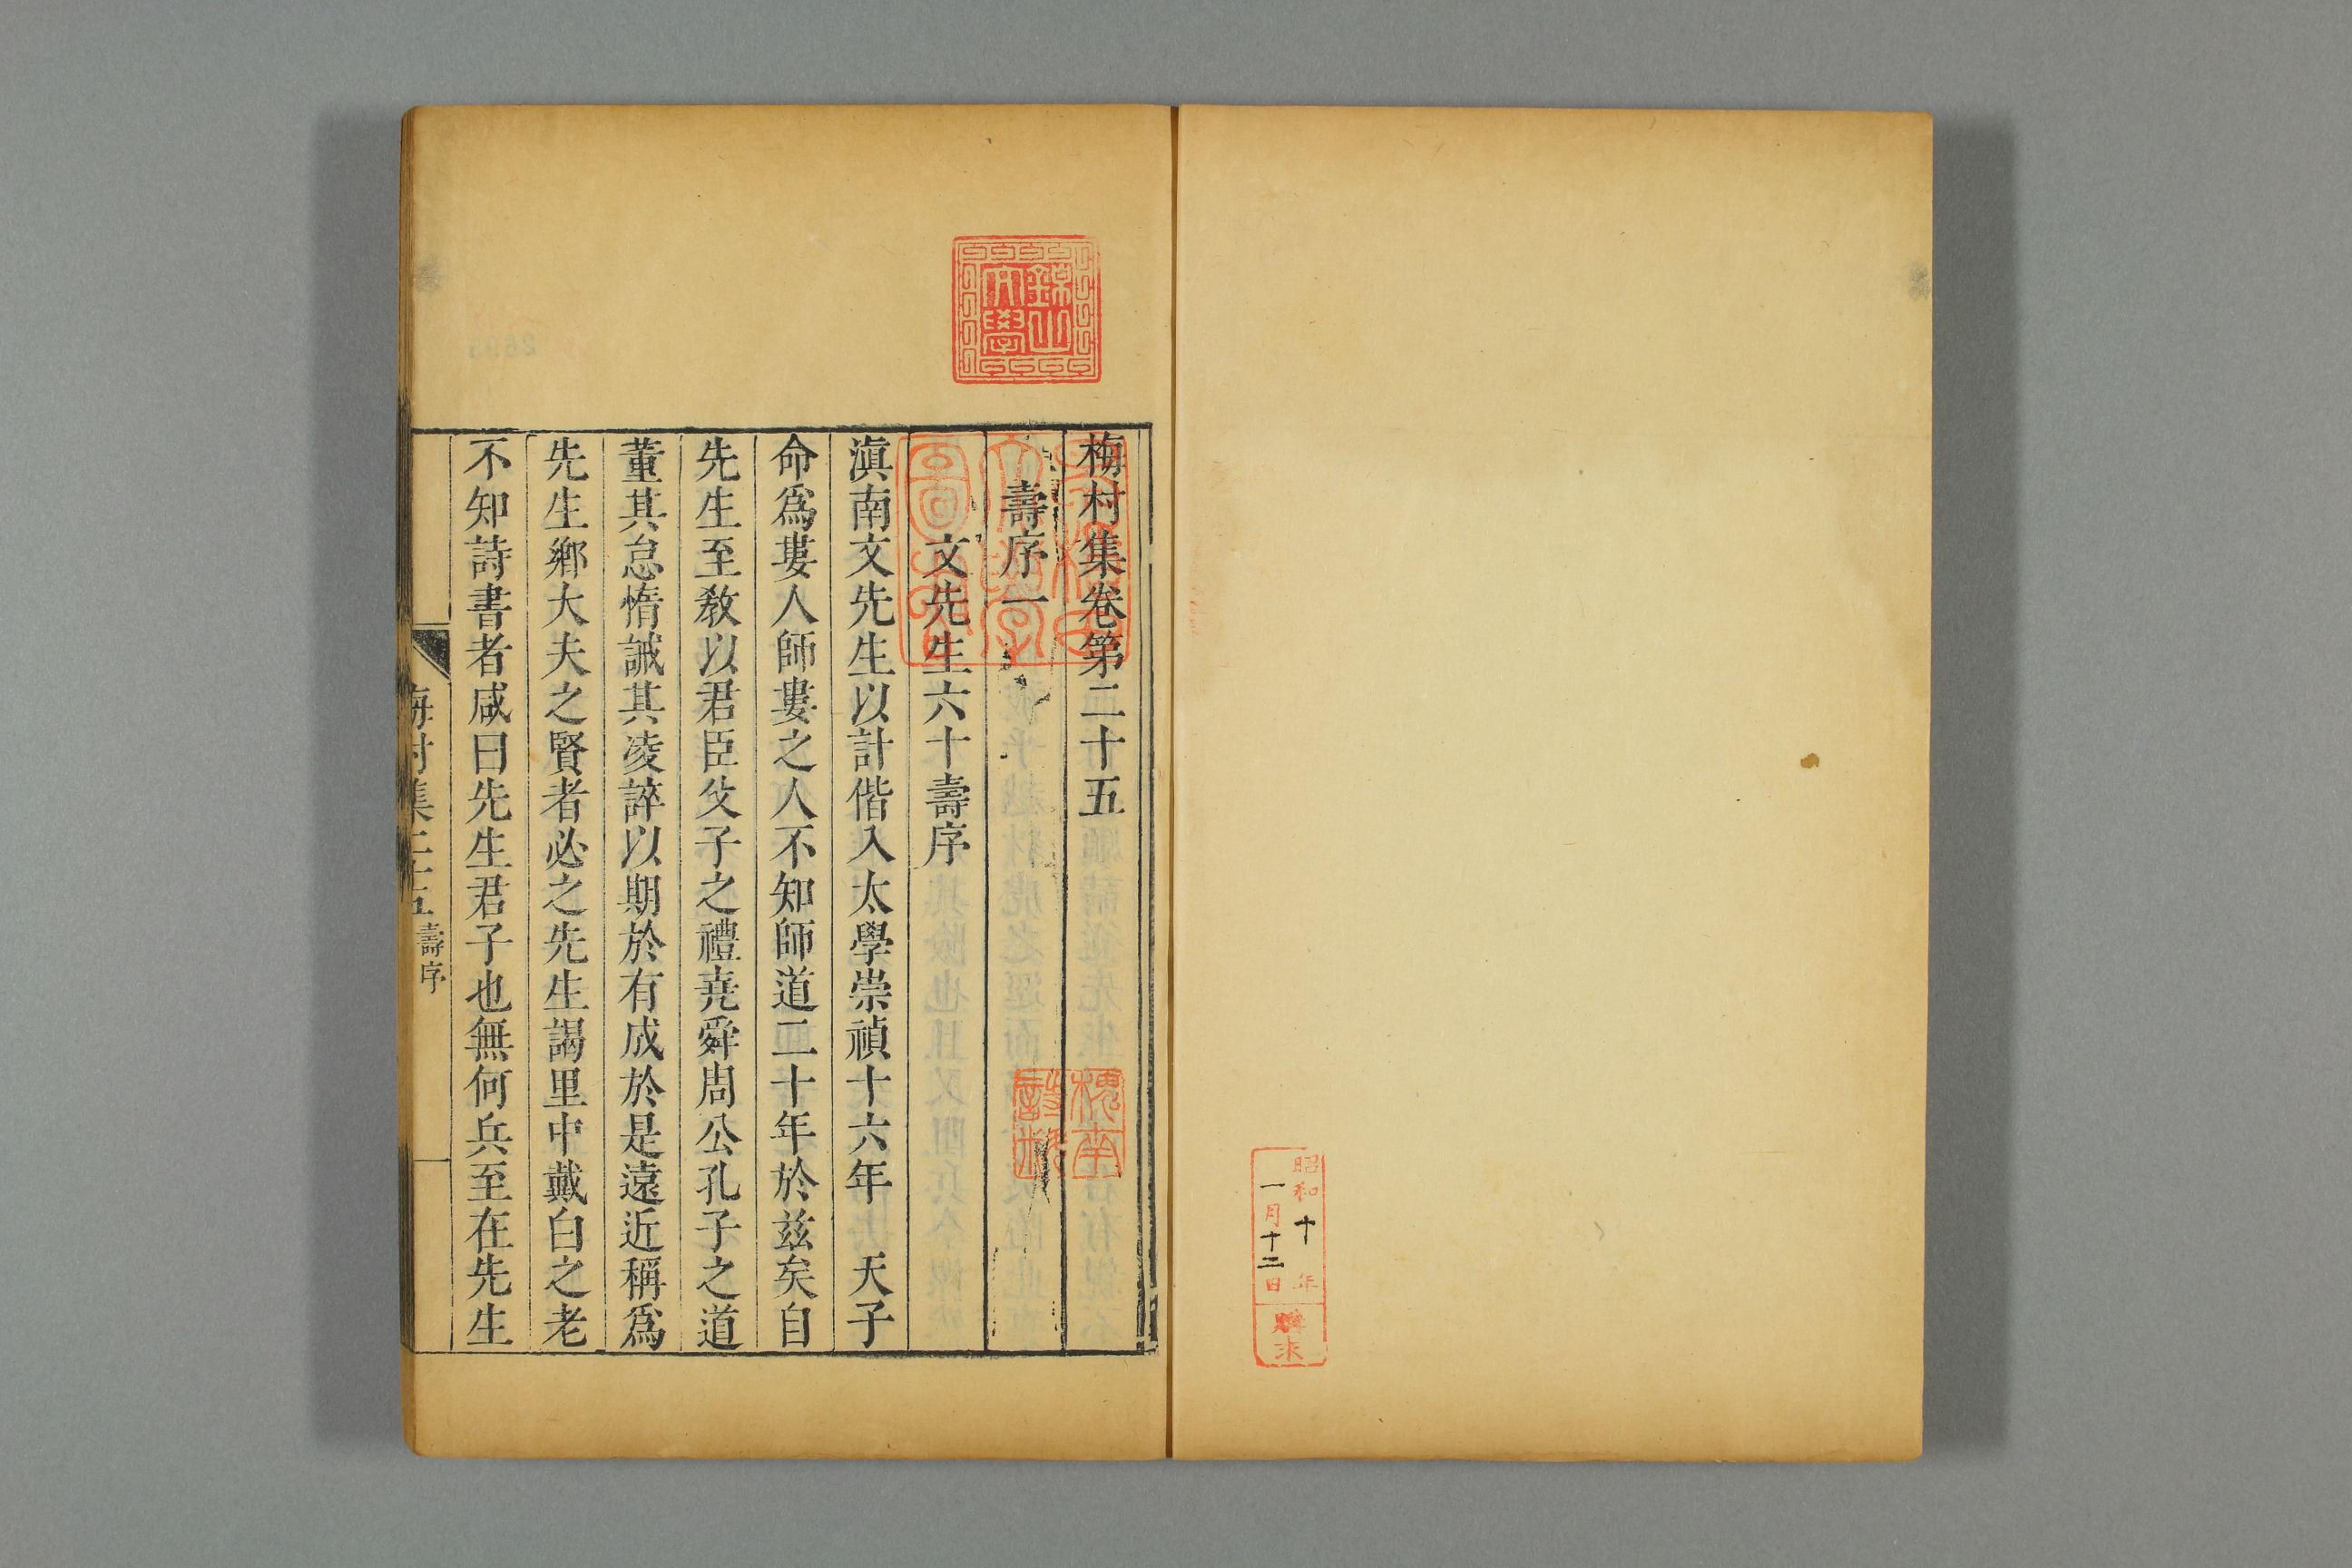 昭和十年
一月十二日
購求
錦山
文學
梅村集卷第二十五
壽序一
文先生六十壽序
滇南文先生以計偕入太學崇禎十六年　天子
命爲婁人師婁之人不知師道二十年於兹矣自
先生至教以君臣父子之禮堯舜周公孔子之道
董其怠惰誡其凌誶以期於有成於是遠近稱爲
先生鄉大夫之賢者必之先生謁里中戴白之老
不知詩書者咸曰先生君子也無何兵至在先生
梅村集二十五 壽序